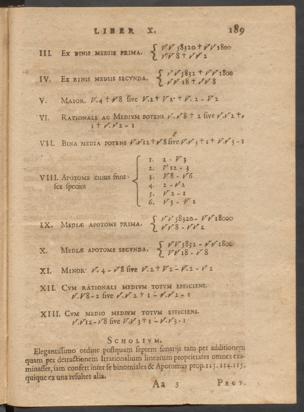 LIBER X. 189
III. EX BINIS MEDIIS PRIMA. { √√58320 + √√1800
√√8 + √√2
IV. EX BINIS MEDIIS SECVNDA. { √√3852 + √√1800
√√18 + √√8
V. MAIOR. √.4 + √8 sive √.2 + √2. + √.2 - √2
VI. RATIONALE AC MEDIVM POTENS √.√8 + 2 sive √.√2 +
1 + √.√2 - 1
VII. BINA MEDIA POTENS √.√12 + √8 sive √.√3 + 1 + √.√3 - 1
VIII. APOTOME cuius
sex species {
1. 2 - √3
2. √12 - 3
3. √8 - √6
4. 2 - √2
5. √2 - 1
6. √3 - √2
IX. MEDIÆ APOTOME PRIMA. { √√58320 - √√18000
√√8 - √√2
X. MEDIÆ APOTOME SECVNDA. { √√3852 - √√1800
√√18 - √√8
XI. MINOR √.4 - √8 sive √.2 + √2 - √.2 - √2
XII. CVM RATIONALI MEDIVM TOTVM EFFICIENS.
√.√8 - 2 sive √.√2 + 1 - √.√2 - 1
XIII. CVM MEDIO MEDIVM TOTVM EFFICIENS.
√.√12 - √8 sive √.√3 + 1 - √.√3 - 1
SCHOLIVM.
Elegantissimo ordine postquam septem senarijs tam per additionem
quam per detractionem Irrationalium linearum proprietates omnes exa-
minasset, iam confert inter se binomiales & Apotomas prop. 113. 114. 115.
quique ex una resultet alia.
Aa 3 PROP.